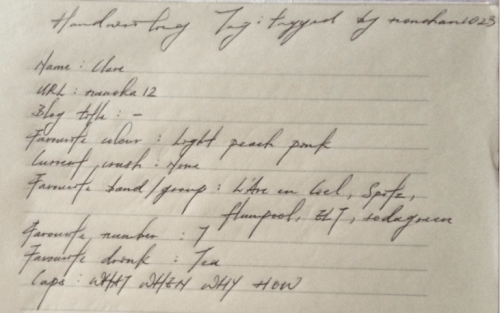 Handwriting Tag: tagged by nanohana023
Name : Clare
URL : nanoha12
Blog title : -
Favourite colour : Light peach pink
Current crush : None
Favourite band/group : L'Arc en Ciel, Spitz,
flumpool, ELT, sodagreen
Favourite number : 7
Favourite drink : Tea
Caps : WHAT WHEN WHY HOW